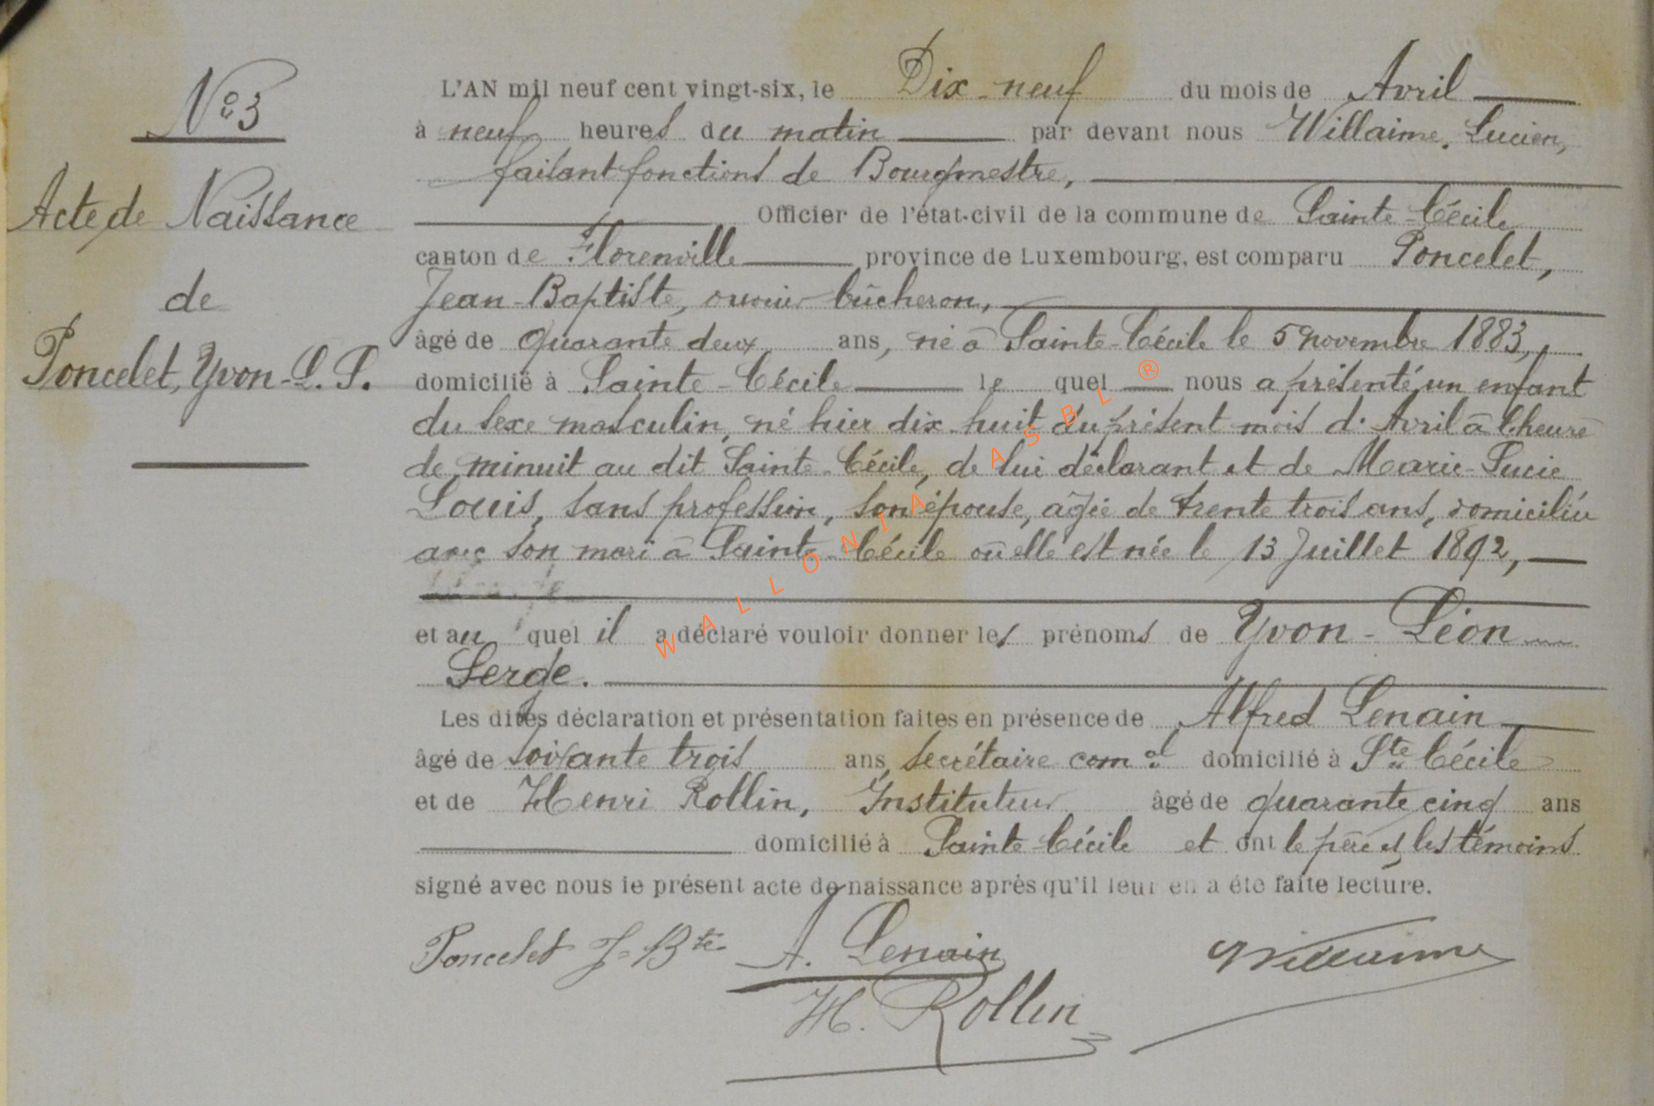 N° 3
Acte de Naissance
de
Poncelet, Yvon-L. S.
L'AN mil neuf cent vingt-six, le Dix-neuf du mois de Avril
à neuf heures du matin par devant nous Willaime, Lucien,
faisant fonctions de Bourgmestre,
Officier de l'état-civil de la commune de Sainte-Cécile
canton de Florenville province de Luxembourg, est comparu Poncelet,
Jean-Baptiste, ouvrier bûcheron,
âgé de quarante deux ans, né à Sainte-Cécile le 5 novembre 1883,
domicilié à Sainte-Cécile le quel nous a présenté un enfant
du sexe masculin, né hier dix-huit du présent mois d'Avril à l'heure
de minuit au dit Sainte-Cécile, de lui déclarant et de Marie-Lucie
Louis, sans profession, son épouse, âgée de trente trois ans, domiciliée
avec son mari à Sainte-Cécile où elle est née le 13 Juillet 1892,
et au quel il a déclaré vouloir donner les prénoms de Yvon-Léon
Serge.
Les dites déclaration et présentation faites en présence de Alfred Lenain
âgé de soixante trois ans, secrétaire com.al domicilié à Ste Cécile
et de Henri Rollin, Instituteur âgé de quarante cinq ans
domicilié à Sainte-Cécile et ont le père et les témoins
signé avec nous le présent acte de naissance après qu'il leur en a été faite lecture.
Poncelet J-Bte A. Lenain Willaime
H. Rollin
WALLONIA ASBL ®